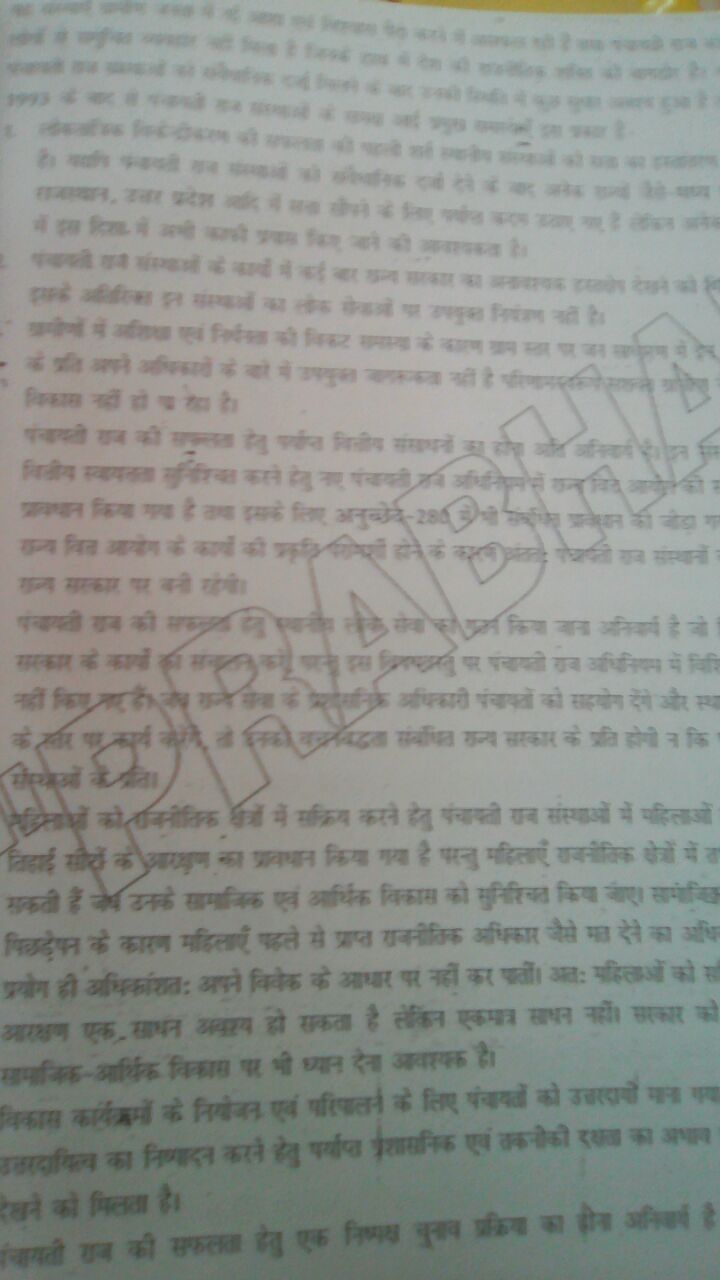 लोगों से समुचित व्यवहार नहीं मिला है जिनके हाथ में देश की राजनीतिक शक्ति की बागडोर है।
पंचायती राज संस्थाओं को संवैधानिक दर्जा मिलने के बाद उनकी स्थिति में कुछ सुधार अवश्य हुआ है
1993 के बाद से पंचायती राज संस्थाओं के समक्ष आई प्रमुख समस्याएँ इस प्रकार है-
1. लोकतांत्रिक विकेन्द्रीकरण की सफलता की पहली शर्त स्थानीय संस्थाओं को सत्ता का हस्तांतरण
है। यद्यपि पंचायती राज संस्थाओं को संवैधानिक दर्जा देने के बाद अनेक राज्यों जैसे-मध्य
राजस्थान, उत्तर प्रदेश आदि में सत्ता सौंपने के लिए पर्याप्त कदम उठाए गए हैं लेकिन
में इस दिशा में अभी काफी प्रयास किए जाने की आवश्यकता है।
पंचायती राज संस्थाओं के कार्यों में कई बार राज्य सरकार का अनावश्यक हस्तक्षेप देखने को
इसके अतिरिक्त इन संस्थाओं का लोक सेवाओं पर उपयुक्त नियंत्रण नहीं है।
ग्रामीणों में अशिक्षा एवं निर्धनता की विकट समस्या के कारण ग्राम स्तर पर जन साधारण में
के प्रति अपने अधिकारों के बारे में उपयुक्त जागरूकता नहीं है परिणामस्वरूप
विकास नहीं हो पा रहा है।
पंचायती राज की सफलता हेतु पर्याप्त वित्तीय संसाधनों का होना अति अनिवार्य है। इन
वित्तीय स्वायतता सुनिश्चित करने हेतु नए पंचायती राज अधिनियम में राज्य वित्त आयोग की
प्रावधान किया गया है तथा इसके लिए अनुच्छेद-280 में भी संबंधित प्रावधान को जोड़ा
राज्य वित्त आयोग के कार्यों की प्रकृति परामर्शी होने के कारण अंततः पंचायती राज संस्थानों
राज्य सरकार पर बनी रहेगी।
पंचायती राज की सफलता हेतु स्थानीय लोक सेवा का गठन किया जाना अनिवार्य है जो
सरकार के कार्यों का संचालन करे परन्तु इस विषयवस्तु पर पंचायती राज अधिनियम में
नहीं किए गए हैं। जब राज्य सेवा के प्रशासनिक अधिकारी पंचायतों को सहयोग देंगे और
के स्तर पर कार्य करेंगे, तो उनकी वचनबद्धता संबंधित राज्य सरकार के प्रति होगी न कि
संस्थाओं के प्रति।
महिलाओं को राजनीतिक क्षेत्रों में सक्रिय करने हेतु पंचायती राज संस्थाओं में महिलाओं
तिहाई सीटों के आरक्षण का प्रावधान किया गया है परन्तु महिलाएँ राजनीतिक क्षेत्रों में
सकती हैं जब उनके सामाजिक एवं आर्थिक विकास को सुनिश्चित किया जाए।
पिछड़ेपन के कारण महिलाएँ पहले से प्राप्त राजनीतिक अधिकार जैसे मत देने का
प्रयोग ही अधिकांशतः अपने विवेक के आधार पर नहीं कर पातीं। अतः महिलाओं को
आरक्षण एक साधन अवश्य हो सकता है लेकिन एकमात्र साधन नहीं। सरकार को
सामाजिक-आर्थिक विकास पर भी ध्यान देना आवश्यक है।
विकास कार्यक्रमों के नियोजन एवं परिपालन के लिए पंचायतों को उत्तरदायी माना
उत्तरदायित्व का निष्पादन करने हेतु पर्याप्त प्रशासनिक एवं तकनीकी दक्षता का अभाव
देखने को मिलता है।
पंचायती राज की सफलता हेतु एक निष्पक्ष चुनाव प्रक्रिया का होना अनिवार्य है